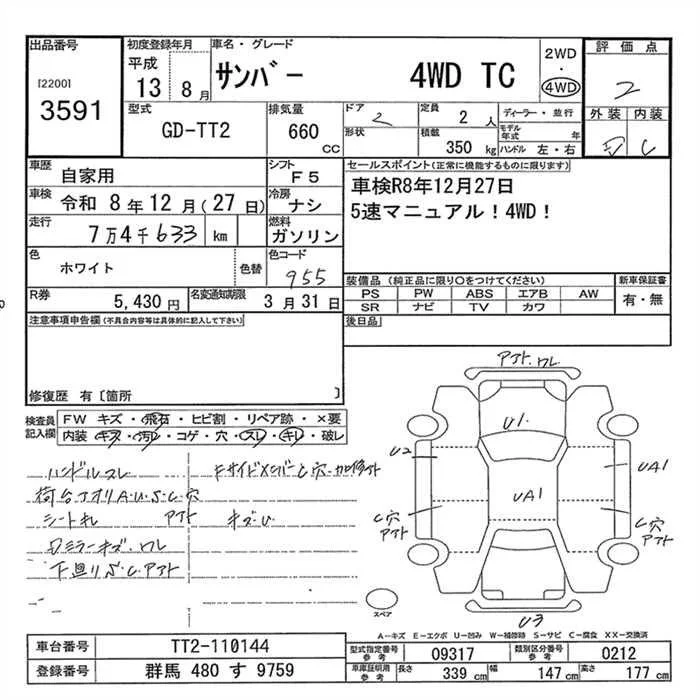 出品番号
[2200]
3591
初度登録年月
平成
13 8 月
車名・グレード
サンバー 4WD TC
2WD
・
4WD
評価点
2
外装 内装
D C
型式
GD-TT2
排気量
660 CC
ドア
2
形状
定員
2 人
積載
350 kg
ディーラー・並行
モデル年式 年
ハンドル 左・右
車歴
自家用
シフト
F5
車検
令和 8 年 12 月(27 日)
冷房
ナシ
走行
7万4千633 km
燃料
ガソリン
色
ホワイト
色替
色コード
955
R券
5,430 円
名変通知期限
3 月 31 日
セールスポイント(正常に機能するものに限ります)
車検R8年12月27日
5速マニュアル!4WD!
装備品(純正品に限り○をつけてください)
PS PW ABS エアB AW
SR ナビ TV カワ
新車保証書
有・無
後日品
注意事項申告欄(不具合内容等は具体的に記入して下さい)
修復歴 有〔箇所 〕
検査員記入欄
FW キズ・飛石・ヒビ割・リペア跡・×要
内装・キズ・汚レ・コゲ・穴・スレ・キレ・破レ
ハンドルスレ
荷台アオリA.U.S.C穴
シートキレ アト
ミラーキズ.ワレ
下廻りS.Cアト
FサイドメンバーC穴
キズU
アト.ワレ
U1
U2
UA1
UA1
C穴
アト
C穴
アト
U3
スペア
A-キズ E-エクボ U-凹み W-補修跡 S-サビ C-腐食 XX-交換済
車台番号
TT2-110144
登録番号
群馬 480 す 9759
型式指定番号
参考
09317
類別区分番号
参考
0212
車庫証明用
参考
長さ 339 cm 幅 147 cm 高さ 177 cm